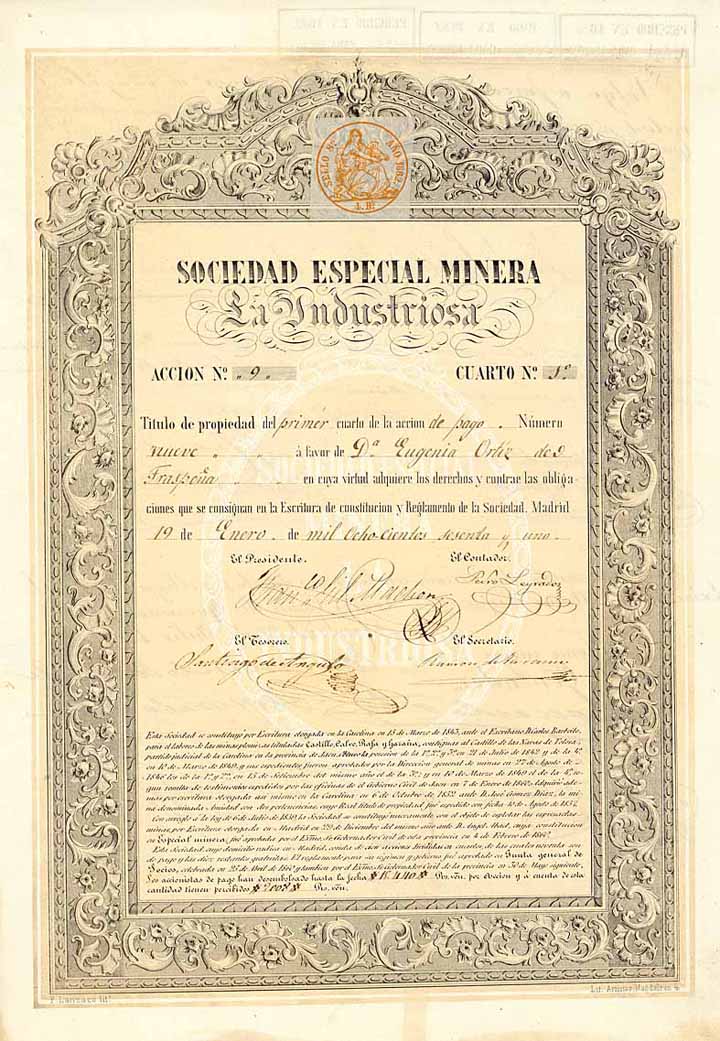 SELLO 8º AÑO 1861
SOCIEDAD ESPECIAL MINERA
La Industriosa
ACCION Nº „ 9 „ CUARTO Nº 1º
Título de propiedad del primer cuarto de la accion de pago . Número
nueve „ „ á favor de Dª Eugenia Ortíz de
Traspeña „ „ en cuya virtud adquiere los derechos y contrae las obliga-
ciones que se consignan en la Escritura de constitucion y Reglamento de la Sociedad. Madrid
19 de Enero . de mil ochocientos sesenta y uno.
El Presidente. El Contador.
Franco Gil
El Tesorero. El Secretario.
Santiago de Angulo Ramon
Esta Sociedad se constituyó por Escritura otorgada en la Carolina en 15 de Marzo de 1843, ante el Escribano D. Carlos
para el laboreo de las minas plomizas tituladas Castillo, Calvo, Rosa y Hazaña, contiguas al Castillo de las Navas de Tolosa,
partido judicial de la Carolina en la provincia de Jaen. posesion de la 1ª, 2ª y 3ª en 21 de Julio de 1842 y de la 4ª
en 1º de Marzo de 1849, y sus espedientes fueron aprobados por la Direccion general de minas en 27 de Agosto de
1846 los de la 1ª y 2ª, en 15 de Setiembre del mismo año el de la 3ª; y en 10 de Marzo de 1849 el de la 4ª, se-
gun resulta de testimonios espedidos por las oficinas de el Gobierno Civil de Jaen en 7 de Enero de
mas por escritura otorgada asi mismo en la Carolina en 6 de Octubre de 1852 ante D. José Gomez Diaz, la mi-
na denominada Amistad con dos pertenencias, cuyo Real título de propiedad fué espedido con fecha 10 de Agosto de 1857.
Con arreglo á la ley de 6 de Julio de 1859, la Sociedad se constituyó nuevamente con el objeto de esplotar las espresadas
minas, por Escritura otorgada en Madrid en 29 de Diciembre del mismo año ante D. Angel Abad, cuya constitucion
en Especial minera, fué aprobada por el Exmo. Sr. Gobernador Civil de esta provincia en 4 de Febrero de 1860.
Esta Sociedad, cuyo domicilio radica en Madrid, consta de cien acciones divididas en cuartos, de las cuales noventa son
de pago y las diez restantes gratuitas. El reglamento para su régimen y gobierno fué aprobado en Junta general de
Socios, celebrada en 25 de Abril de 1860 y tambien por el Exmo. Sr. Gobernador Civil de la provincia en 30 de Mayo siguiente.
Los accionistas de pago han desembolsado hasta la fecha Rs. vn. por Accion y á cuenta de esta
cantidad tienen percibidos Rs. vn.